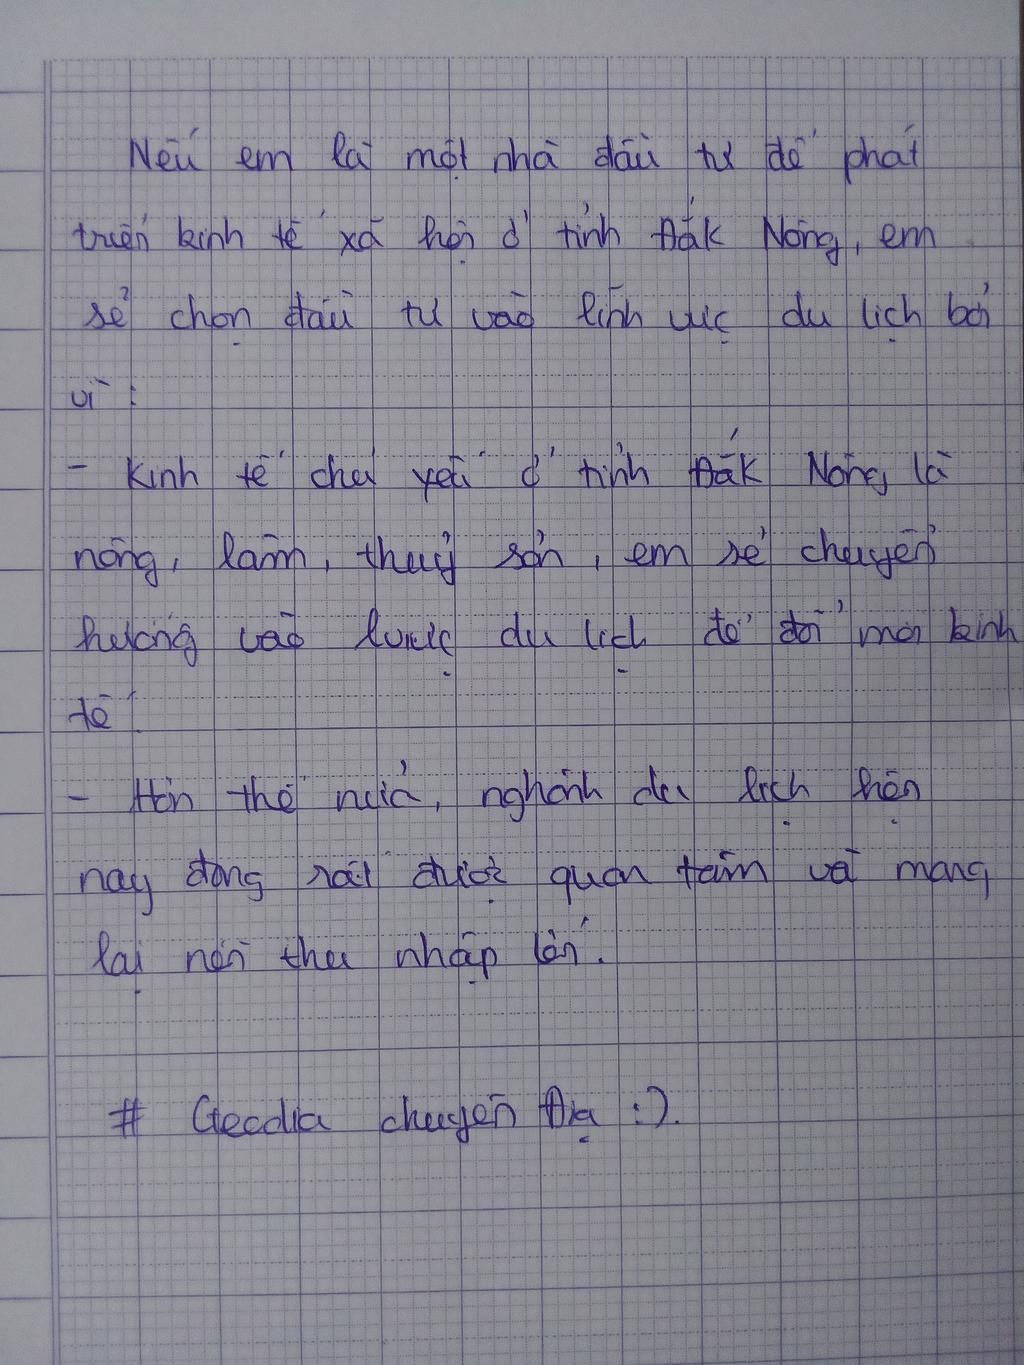 Nếu em là một nhà đầu tư để phát
triển kinh tế xã hội ở tỉnh Đắk Nông, em
sẻ chọn đầu tư vào lĩnh vực du lịch bởi
vì :
- Kinh tế chủ yếu ở tỉnh Đắk Nông là
nông, lâm, thuỷ sản, em sẻ chuyển
hướng vào du lịch để đổi mới kinh
tế
- Hơn thế nửa, nghành du lịch hiện
nay đang rất được quan tâm và mang
lại nền thu nhập lớn.
# Geodia chuyên Địa :).